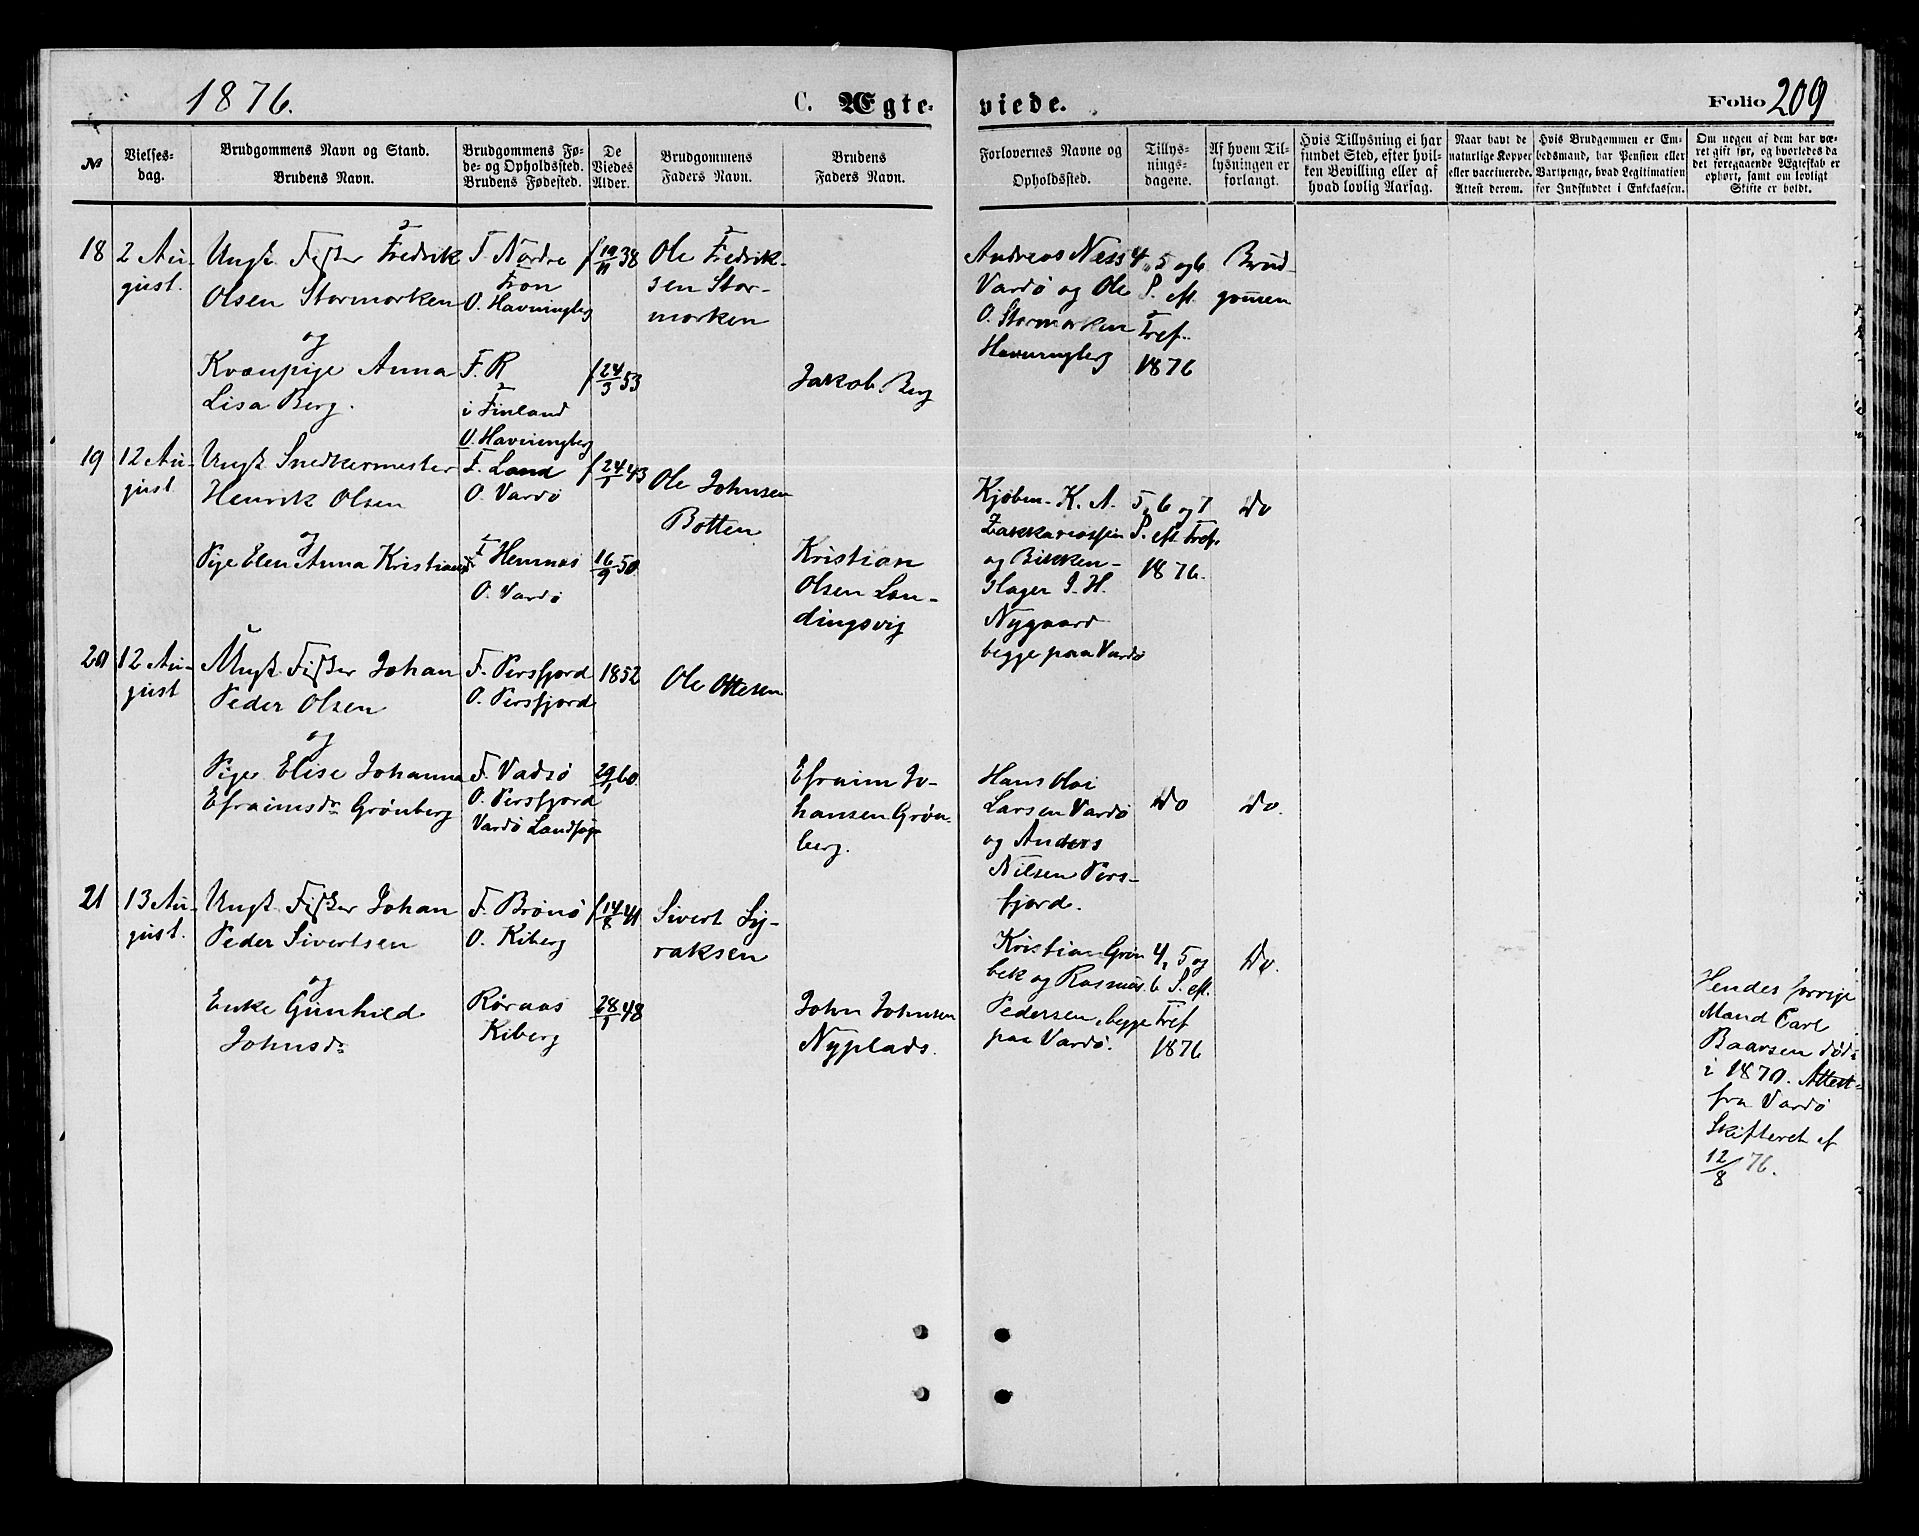 1876.
C. Ægteviede.
Folio 209
№
Vielsesdag.
Brudgommens Navn og Stand.
Brudens Navn.
Brudgommens Føde- og Opholdssted.
Brudens Fødested.
De Viedes Alder.
Brudgommens Faders Navn.
Brudens Faders Navn.
Forlovernes Navne og Opholdssted.
Tillysningsdagene.
Af hvem Tillysningen er forlangt.
Hvis Tillysning ei har fundet Sted, efter hvilken Bevilling eller af hvad lovlig Aarsag.
Naar havt de naturlige Kopper eller vaccinerede. Attest derom.
Hvis Brudgommen er Embedsmand, har Pension eller Vartpenge, hvad Legitimation for Indskuddet i Enkekassen.
Om nogen af dem har været gift før, og hvorledes da det foregaaende Ægteskab er ophørt, samt om lovligt Skifte er holdt.
18
2 August.
Ungk. Fisker Fredrik
Olsen Stormorken
og
Kvænpige Anna
Lisa Berg.
F. Nordre
Fron
O. Havningberg
F. R
i Finland
O. Havningberg
f 19/11 38
f 24/3 53
Ole Fedrik-
sen Stor-
morken
Jakob Berg
Andreas Næss
Vardø og Ole
O. Stormorken
Havningberg
4, 5 og 6
S. eft.
Tref.
1876
Brud-
gommen
19
12 August
Ungk. Snedkermester
Henrik Olsen
og
Pige Elen Anna Kristiansd
F. Land
O. Vardø
F Hemnæs
O. Vardø
f 24/1 43
16/9 50
Ole Johnsen
Botten
Kristian
Olsen Lan-
dingsvig
Kjøbm. K. A.
Zakkariassen
og Bikken-
slager I. H.
Nygaard
begge paa Vardø
5, 6 og 7
S. eft Tref.
1876.
Do
20
12 August
Ungk. Fisker Johan
Peder Olsen
og
Pige Elise Johanna
Efraimsdr Grønberg
F. Persfjord
O. Persfjord
F. Vadsø
O. Persfjord
Vardø Landsogn
1852
29/1 60
Ole Ottesen
Efraim Jo-
hansen Grøn-
berg.
Hans Hoi
Larsen Vardø
og Anders
Nilsen Pers-
fjord.
Do
Do.
21
13 August.
Ungk. Fisker Johan
Peder Sivertsen
og
Enke Gunhild
Johnsdr
F. Brønø
O. Kiberg
Røraas
Kiberg
f 14/8 41
28/1 48
Sivert Sy-
raksen
John Johnsen
Nyplads.
Kristian Grøn
bek og Rasmus
Pedersen, begge
paa Vardø.
4, 5 og
6 S. eft.
Tref
1876
Do.
Hendes forrige
Mand Carl
Baarsen død
i 1870. Attest
fra Vardø
Skifteret af
12/8 76.